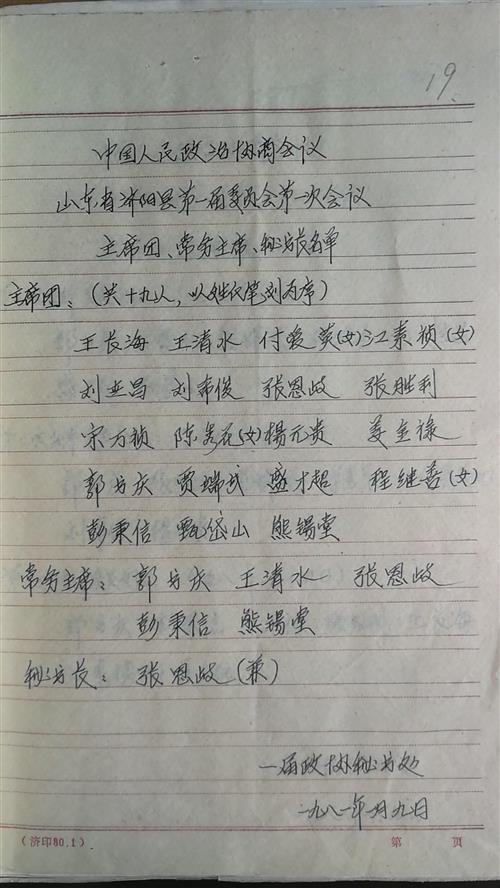 19.
中国人民政治协商会议
山东省济阳县第一届委员会第一次会议
主席团、常务主席、秘书长名单
主席团：（共十九人，以姓氏笔划为序）
王长海 王清水 付爱英（女）江素祯（女）
刘世昌 刘希俊 张恩岐 张胜利
宋万祯 陈秀花（女）楊元贵 姜圭禄
郭书庆 贾瑞武 盛才超 程继善（女）
彭秉信 甄岱山 熊锡堂
常务主席：郭书庆 王清水 张恩岐
彭秉信 熊锡堂
秘书长：张恩岐（兼）
一届政协秘书处
一九八一年 月九日
（济印80.1） 第 页